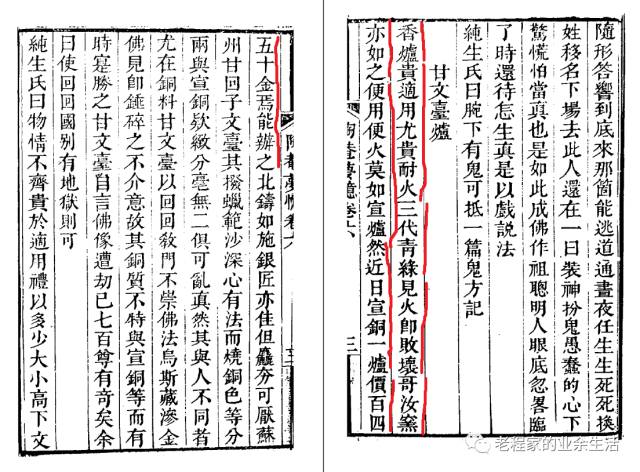 隨形答響到底來那箇能逃道通晝夜任生生死死換
姓移名下場去此人還在一日裝神扮鬼愚蠢的心下
驚慌怕當真也是如此成佛作祖聰明人眼底忽畧臨
了時還待怎生真是以戲說法
純生氏曰腕下有鬼可抵一篇鬼方記
甘文臺爐
香爐貴適用尤貴耐火三代青綠見火即敗壞哥汝窰
亦如之便用便火莫如宣爐然近日宣銅一爐價百四
陶菴夢憶卷六
三
五十金焉能辦之北鑄如施銀匠亦佳但麤夯可厭蘇
州甘回子文臺其撥蠟範沙深心有法而燒銅色等分
兩與宣銅欵緻分毫無二俱可亂真然其與人不同者
尤在銅料甘文臺以回回敎門不崇佛法烏斯藏滲金
佛見即錘碎之不介意故其銅質不特與宣銅等而有
時寔勝之甘文臺自言佛像遭劫已七百尊有奇矣余
曰使回回國別有地獄則可
純生氏曰物情不齊貴於適用禮以多少大小高下文
老程家的业余生活